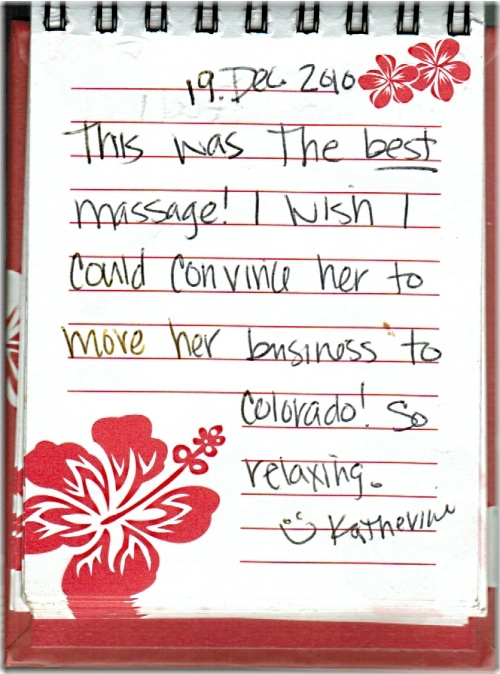 19. Dec. 2010
This was The best
massage! I wish I
could convince her to
move her business to
Colorado! So
relaxing.
Katherine